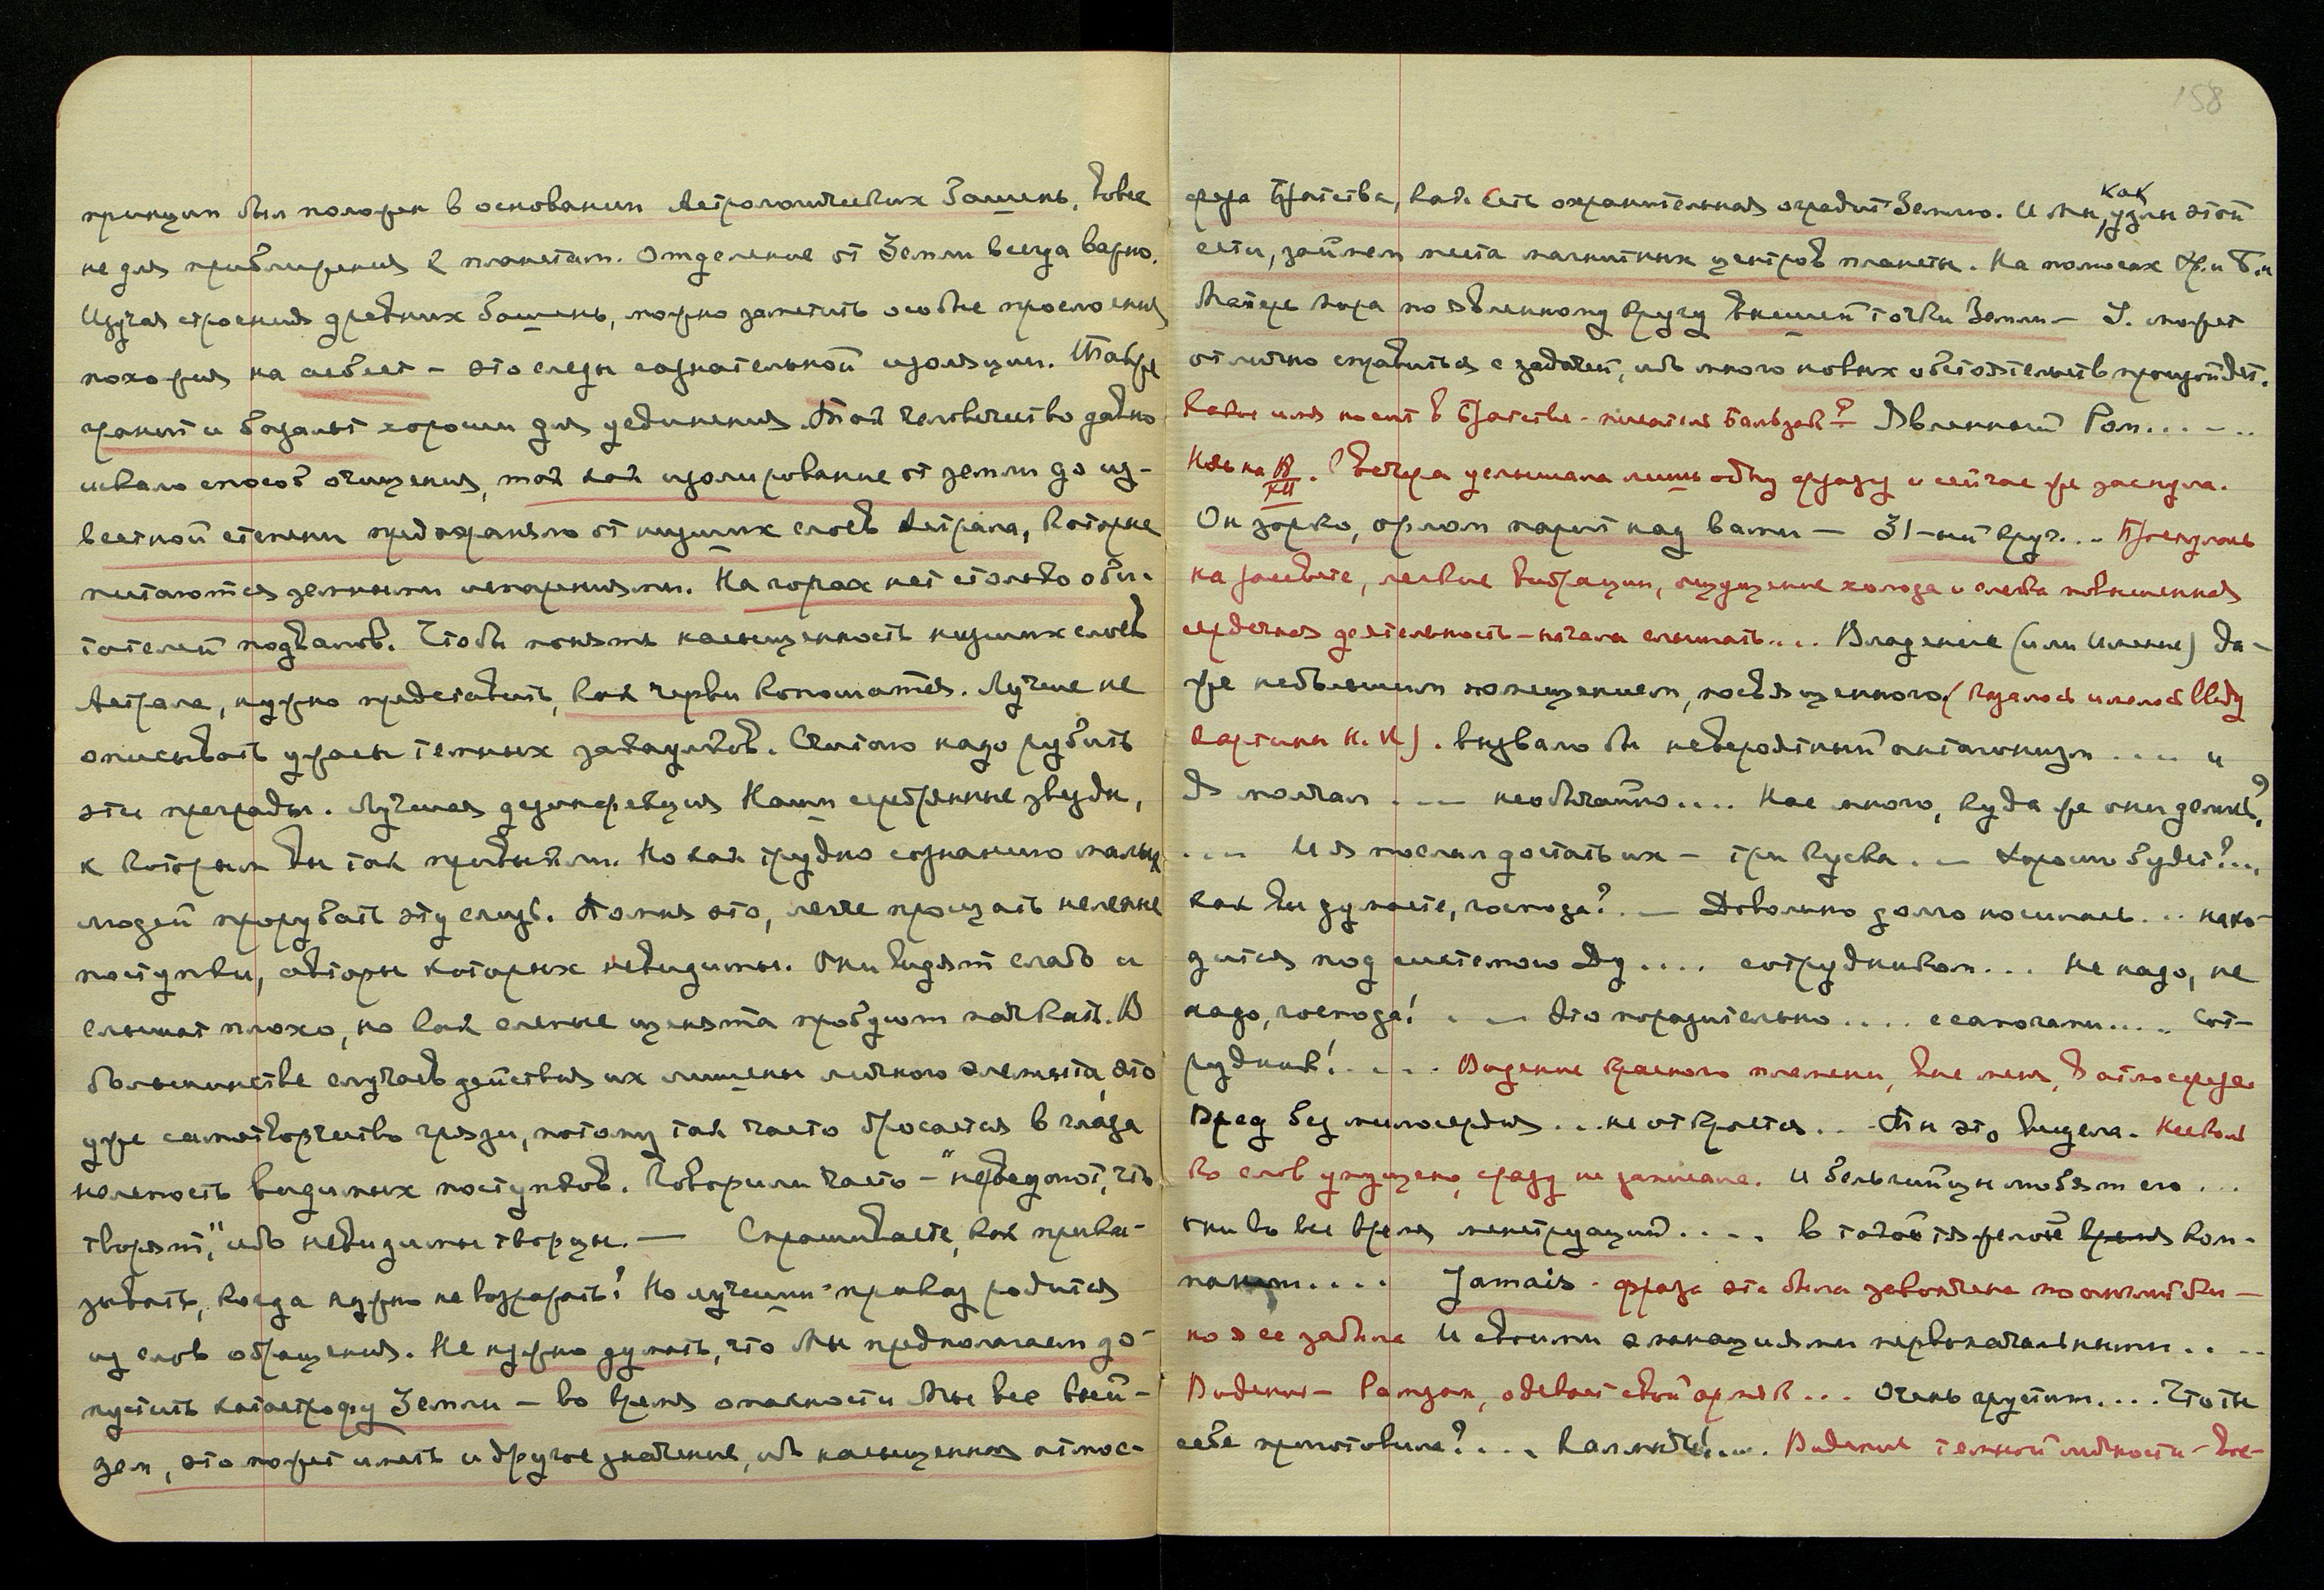 принцип был положен в основании Астрологических Башень, вовсе
не для приближения к планетам. Отделение от Земли всегда важно.
Изучая строения древних башень, можно заметить особые прослоения
похожия на асбест – это следы сознательной изоляции. Также
гранит и базальт хороши для уединения. Так человечество давно
искало способ очищения, так как изолирование от земли до из-
вестной степени предохраняло от низших слоев Астрала, которые
питаются земными испарениями. На горах нет столько оби-
тателей подвалов. Чтобы понять насыщенность низших слоев
Астрала, нужно представить, как черви копошатся. Лучше не
описывать ужасы темных закаулков. Светло надо рубить
эти преграды. Лучшая дезинфекция Наши серебрянные звезды,
к которым вы так привыкли. Но как трудно сознанию малых
людей прорубать эту слизь. Помня это, легче прощать нелепые
поступки, авторы которых невидимы. Они видят слабо и
слышат плохо, но как слепые щенята пробуют пачкать. В
большинстве случаев действия их лишены личного элемента, это
уже самотворчество грязи, потому так часто бросается в глаза
нелепость видимых поступков. Говорили часто – "не ведают, что
творят," ибо невидимы творцы. — Спрашиваете, как прика-
зывать, когда нужно не возражать? Но лучший приказ родится
из слов обращения. Не нужно думать, что Мы предполагаем до-
пустить катастрофу Земли – во время опасности Мы все вый-
дем, это может иметь и другое значение, ибо насыщенная атмос-
158
фера Братства, как сеть охранительная оградит Землю. И Мы, как узлы этой
сети, займем места магнитных центров планеты. На полюсах и
Матерь Мира по явленному кругу внешней точки Земли – У. может
отлично справиться с задачей, ибо много новых обстоятельств произойдет.
Какое имя носит в Братстве – писатель Бальзак? – Явленный Рам... – ..
Ночь на . С вечера услышала лишь одну фразу и сейчас же заснула.
Он зорко, орлом парит над вами — 31-ый круг... Проснулась
на рассвете, легкие вибрации, ощущение холода и слегка повышенная
сердечная деятельность – начала слышать.... Владение (или Имение) да-
же небольшим помещением, посвященного (казалось имелось ввиду
картины Н. К). вызвало бы невероятный антагонизм .... и
я молчал .... необычайно.... Нас много, куда же они делись?
.... И я послал достать их – три куска. – Хорошо будет?...
Как вы думаете, господа?. — Довольно долго носились... нахо-
дится под системою Ду.... сотрудником... Не надо, не
надо, господа! . — Это поразительно.... с сапогами..... Сот-
рудник!..... Видение красного пламени, вне меня, в атмосфере.
Вред без милосердия ... не откроется.. – Ты это видела. Несколь
ко слов упущено, сразу не записала. И бельгийцы любят его ...
они во все время менструаций.... в такое тяжелое время ком-
пании.... Jamais – фраза эта была закончена по английски —
но я ее забыла И своими эманациями первоначальными.. ..
Видение – Рамзан, одевает свой армяк... Очень грустит.... Что ты
себе приготовила?.... Калмык!.... Видение темной личности – вос-